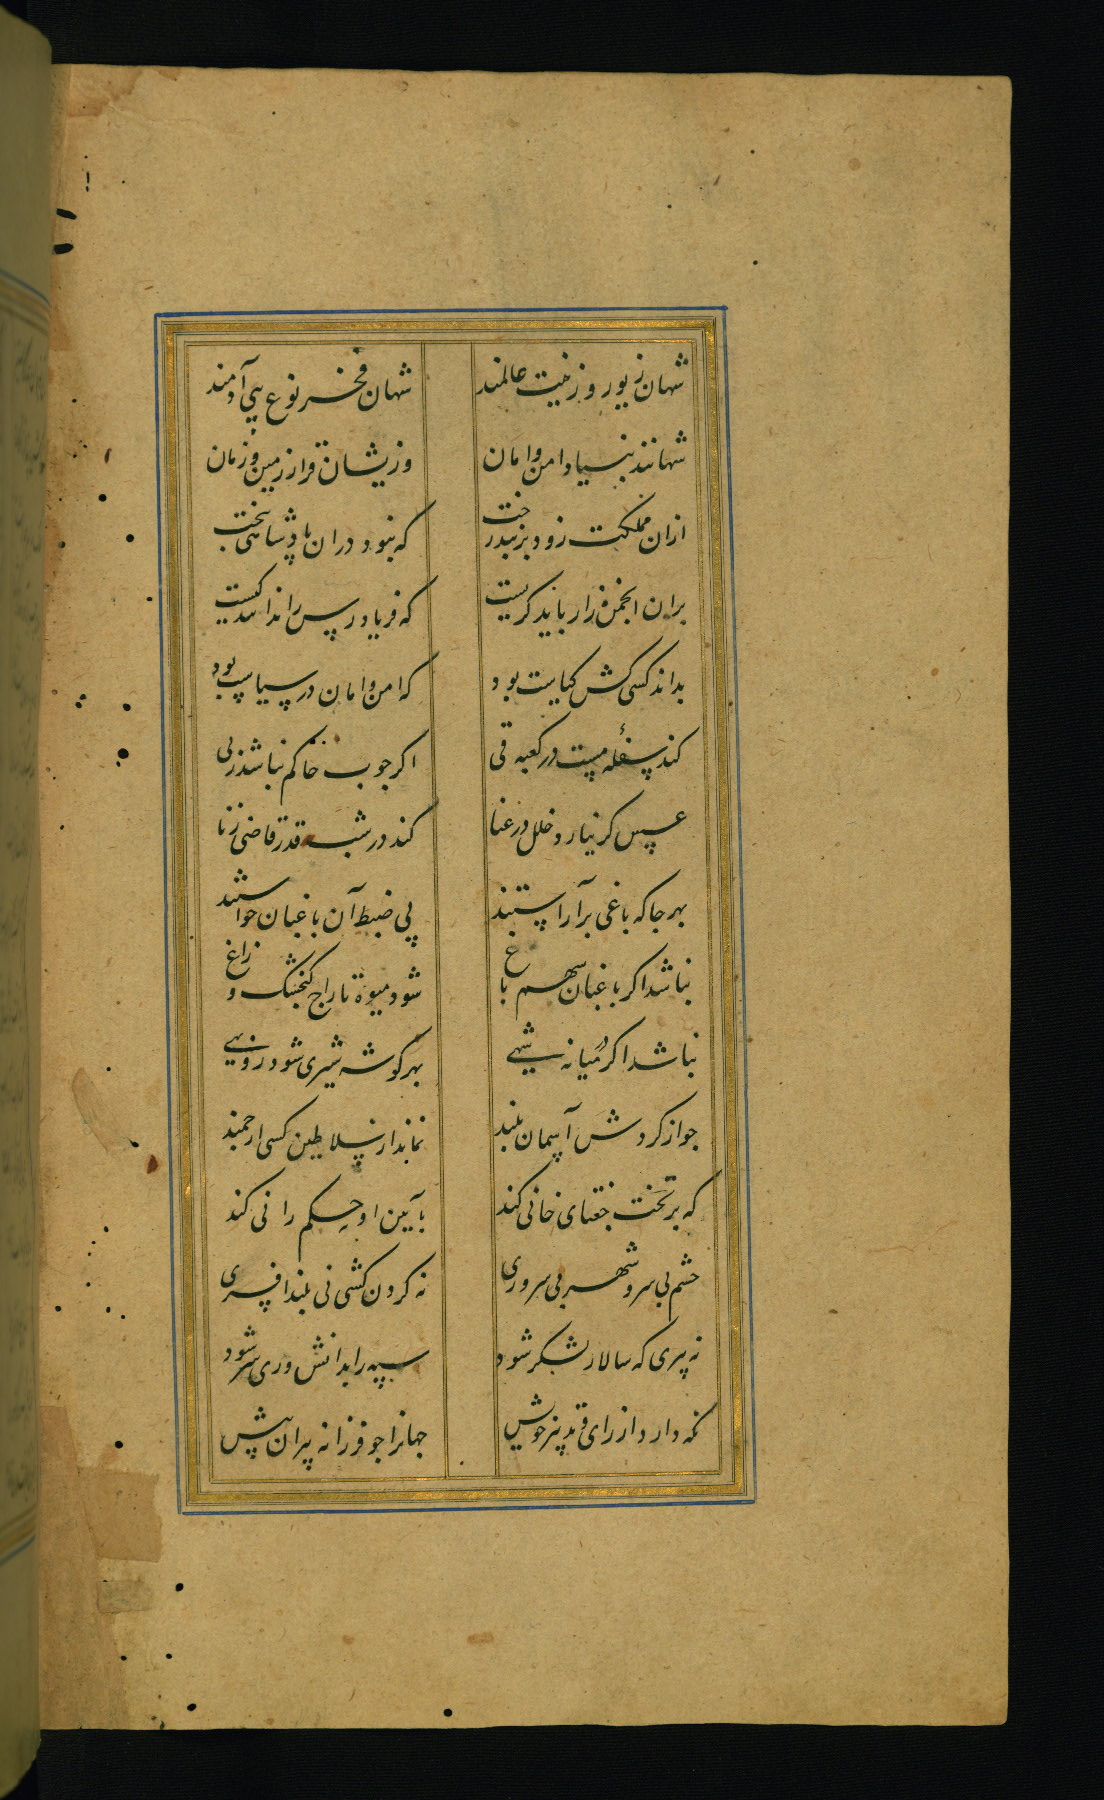 شهان زیور و زینت عالمند شهان فخر نوع بنی آدمند
شهانند بنیاد امن و امان وزیشان قرار زمین و زمان
ازان مملکت زود بربند رخت که نبود دران پادشاهی بتخت
بران انجمن زار باید کریست که فریادرس را ندانند کیست
بداند کسی کش کیاست بود که امن و امان در سیاست بود
کند سفله مست در کعبه قی اکر چوب حاکم نباشد ز پی
عسس کر نیارد خلل در غنا کند در شب قدر قاضی زنا
بهر جا که باغی برآراستند پی ضبط آن باغبان خواستند
نباشد اکر باغبان سهم باغ شود میوه تاراج کنجشک و زاغ
نباشد اکر در میانه شهی بهر کوشه شیری شود روبهی
چو از کردش آسمان بلند نماند از سلاطین کسی ارجمند
که بر تخت جغتای خانی کند بآیین او حکم رانی کند
حشم بی سر و شهر بی سروری نه کردن کشی نی بلند افسری
نه پیری که سالار لشکر شود سپه را بدانش وری سر شود
نکه دارد از رای و تدبیر خویش جهانرا چو فرزانه پیران پیش